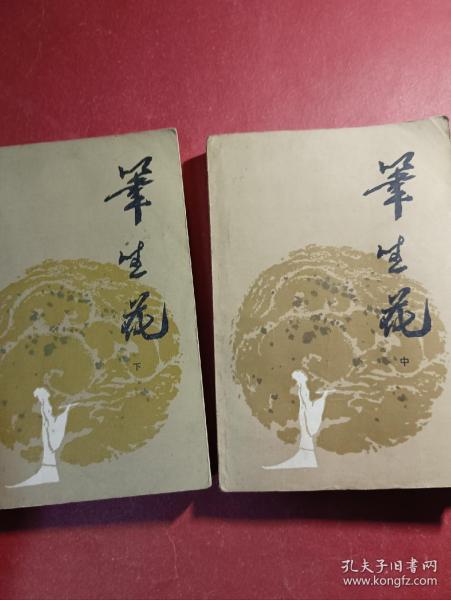 筆生花
下
筆生花
中
孔夫子旧书网
www.kongfz.com